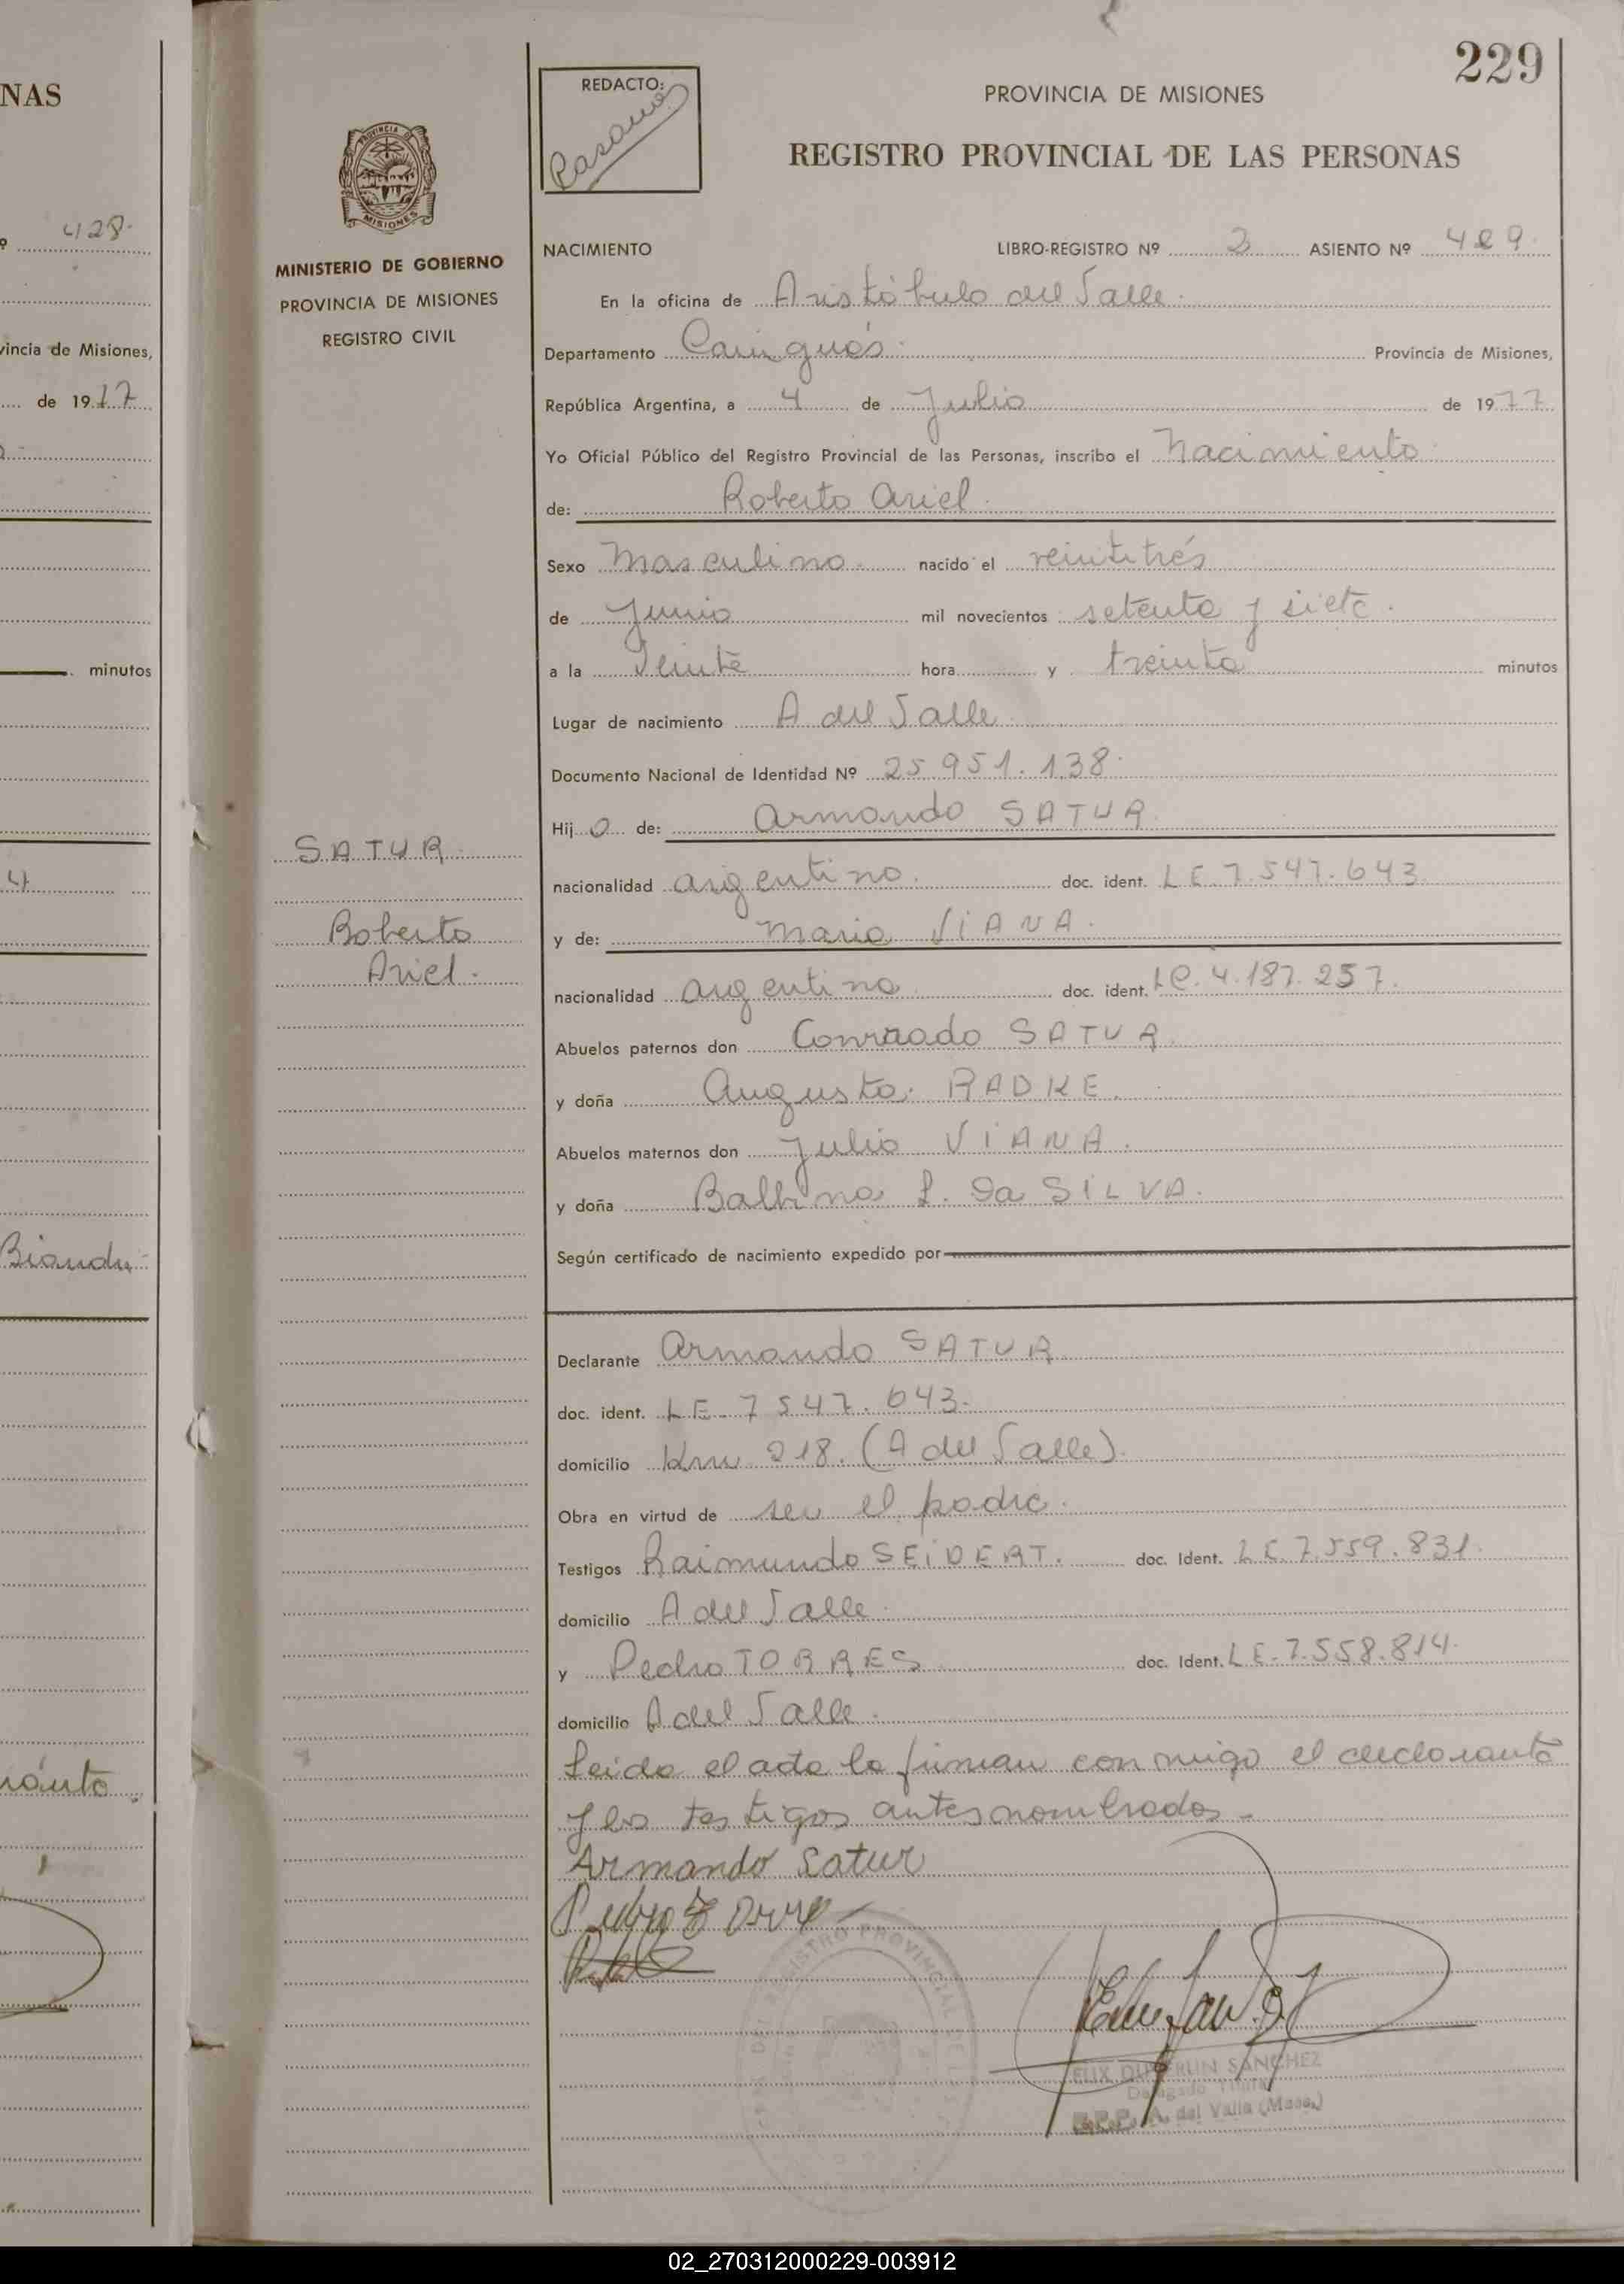 NAS
º 428.
vincia de Misiones,
de 1977
minutos
Biandu
ránto
229
REDACTO:
PROVINCIA DE MISIONES
REGISTRO PROVINCIAL DE LAS PERSONAS
PROVINCIA DE
MISIONES
MINISTERIO DE GOBIERNO
PROVINCIA DE MISIONES
REGISTRO CIVIL
NACIMIENTO LIBRO-REGISTRO Nº 2 ASIENTO Nº 429.
En la oficina de Aristóbulo del Valle.
Departamento Cainguás. Provincia de Misiones,
República Argentina, a 4 de Julio de 1977
Yo Oficial Público del Registro Provincial de las Personas, inscribo el Nacimiento
de: Roberto Ariel.
Sexo Masculino. nacido el veintitrés
de Junio mil novecientos setenta y siete.
a la Veinte hora y treinta minutos
Lugar de nacimiento A del Valle.
Documento Nacional de Identidad Nº 25.951.138.
Hijo de: Armando SATUR
SATUR
nacionalidad argentino. doc. ident. LE.7.547.643
Roberto
Ariel.
y de: Maria VIANA.
nacionalidad argentina doc. ident. LC.4.187.257.
Abuelos paternos don Conrado SATUR
y doña Augusta RADKE.
Abuelos maternos don Julio VIANA.
y doña Balbina L. Da SILVA.
Según certificado de nacimiento expedido por
Declarante Armando SATUR
doc. ident. LE-7 547.643.
domicilio Km 218. (A del Valle).
Obra en virtud de ser el padre.
Testigos Raimundo SEIDERT. doc. Ident. LE.7.559.831.
domicilio A del Valle.
y Pedro TORRES doc. Ident. LE-7.558.814.
domicilio A del Valle.
Leida el acta la firman conmigo el declarante
y los testigos antes nombrados-
Armando Satur
REGISTRO PROVINCIAL DE LAS
SANCHEZ
Delegado Titular
R.P.P. A. del Valle (Mnes.)
02_270312000229-003912